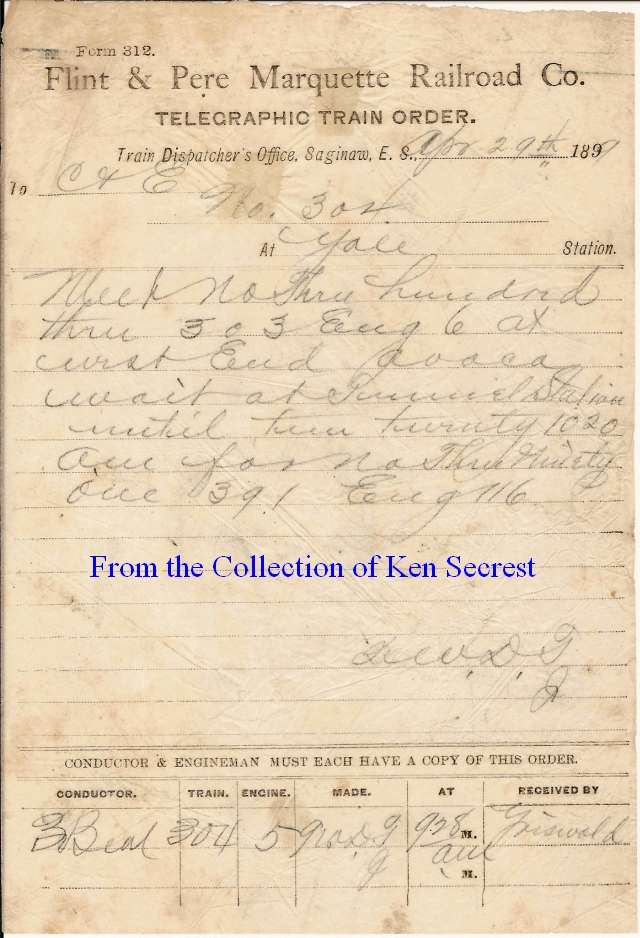 Form 312.
Flint & Pere Marquette Railroad Co.
TELEGRAPHIC TRAIN ORDER.
Train Dispatcher's Office, Saginaw, E. S., Apr 29th 189
To C & E
No. 304
At Yale Station.
Meet No Thru hundred
thru 303 Eng 6 at
west End avoca
wait at Tunnel Station
until ten twenty 1020
am for No Thru Ninety
one 391 Eng 116
From the Collection of Ken Secrest
CONDUCTOR & ENGINEMAN MUST EACH HAVE A COPY OF THIS ORDER.
CONDUCTOR. TRAIN. ENGINE. MADE. AT RECEIVED BY
Beal 304 5 928 M. Griswold
am
M.